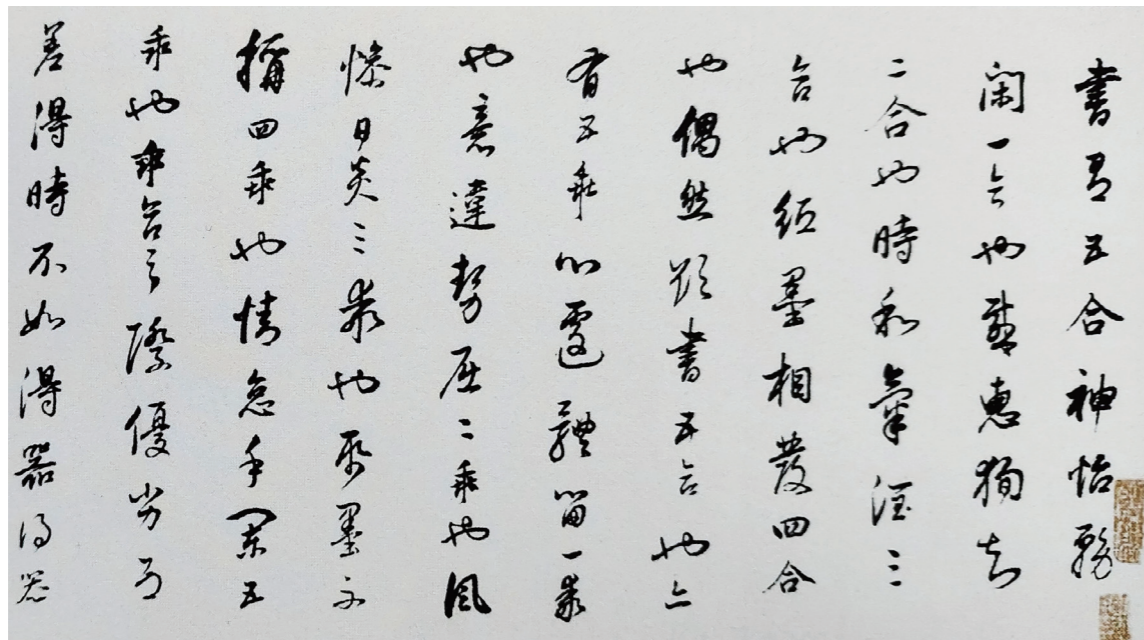 書有五合神怡務
閑一合也感惠徇知
二合也時和氣潤三
合也紙墨相發四合
也偶然欲書五合也亦
有五乖心遽體留一乖
也意違勢屈二乖也風
燥日炎三乖也紙墨不
稱四乖也情怠手闌五
乖也乖合之際優劣互
差得時不如得器得器